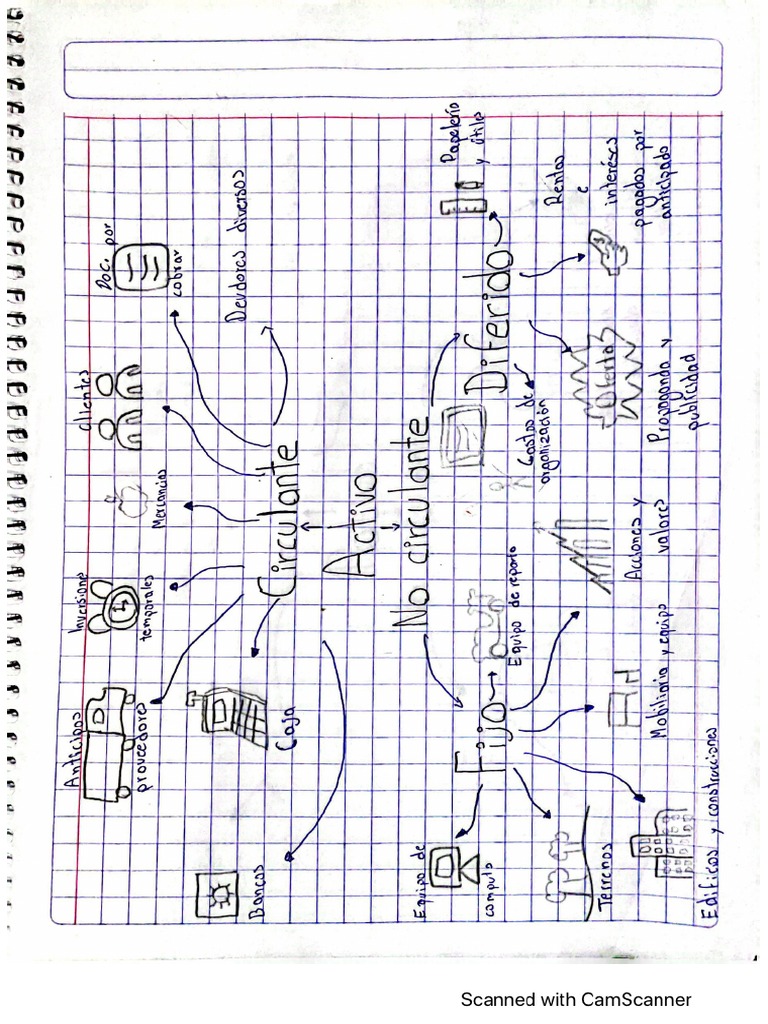 Anticipos
proveedores
Inversione
temporales
Mercancias
Clientes
Doc. por
cobrar
Deudores diversos
Bancos
Caja
Circulante
Activo
No circulante
Fijo
Equipo de reparto
Equipo de
computo
Terrenos
Edificios y construcciones
Mobiliario y equipo
Acciones y
valores
Diferido
Gastos de
organización
Oferta
Propaganda y
publicidad
Papelería
y útiles
Rentas
e
intereses
pagados por
anticipado
Scanned with CamScanner